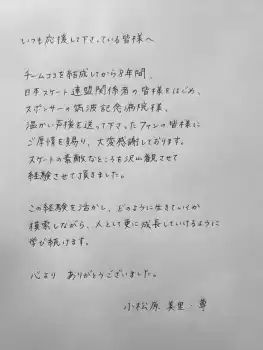 いつも応援して下さっている皆様へ
チームココを結成してから8年間、
日本スケート連盟関係者の皆様をはじめ、
スポンサーの筑波記念病院様、
温かい声援を送って下さったファンの皆様に
ご厚情を賜り、大変感謝しております。
スケートの素敵なところを沢山観させて
経験させて頂きました。
この経験を活かし、どのように生きていくか
模索しながら、人として更に成長していけるように
学び続けます。
心より ありがとうございました。
小松原 美里・尊